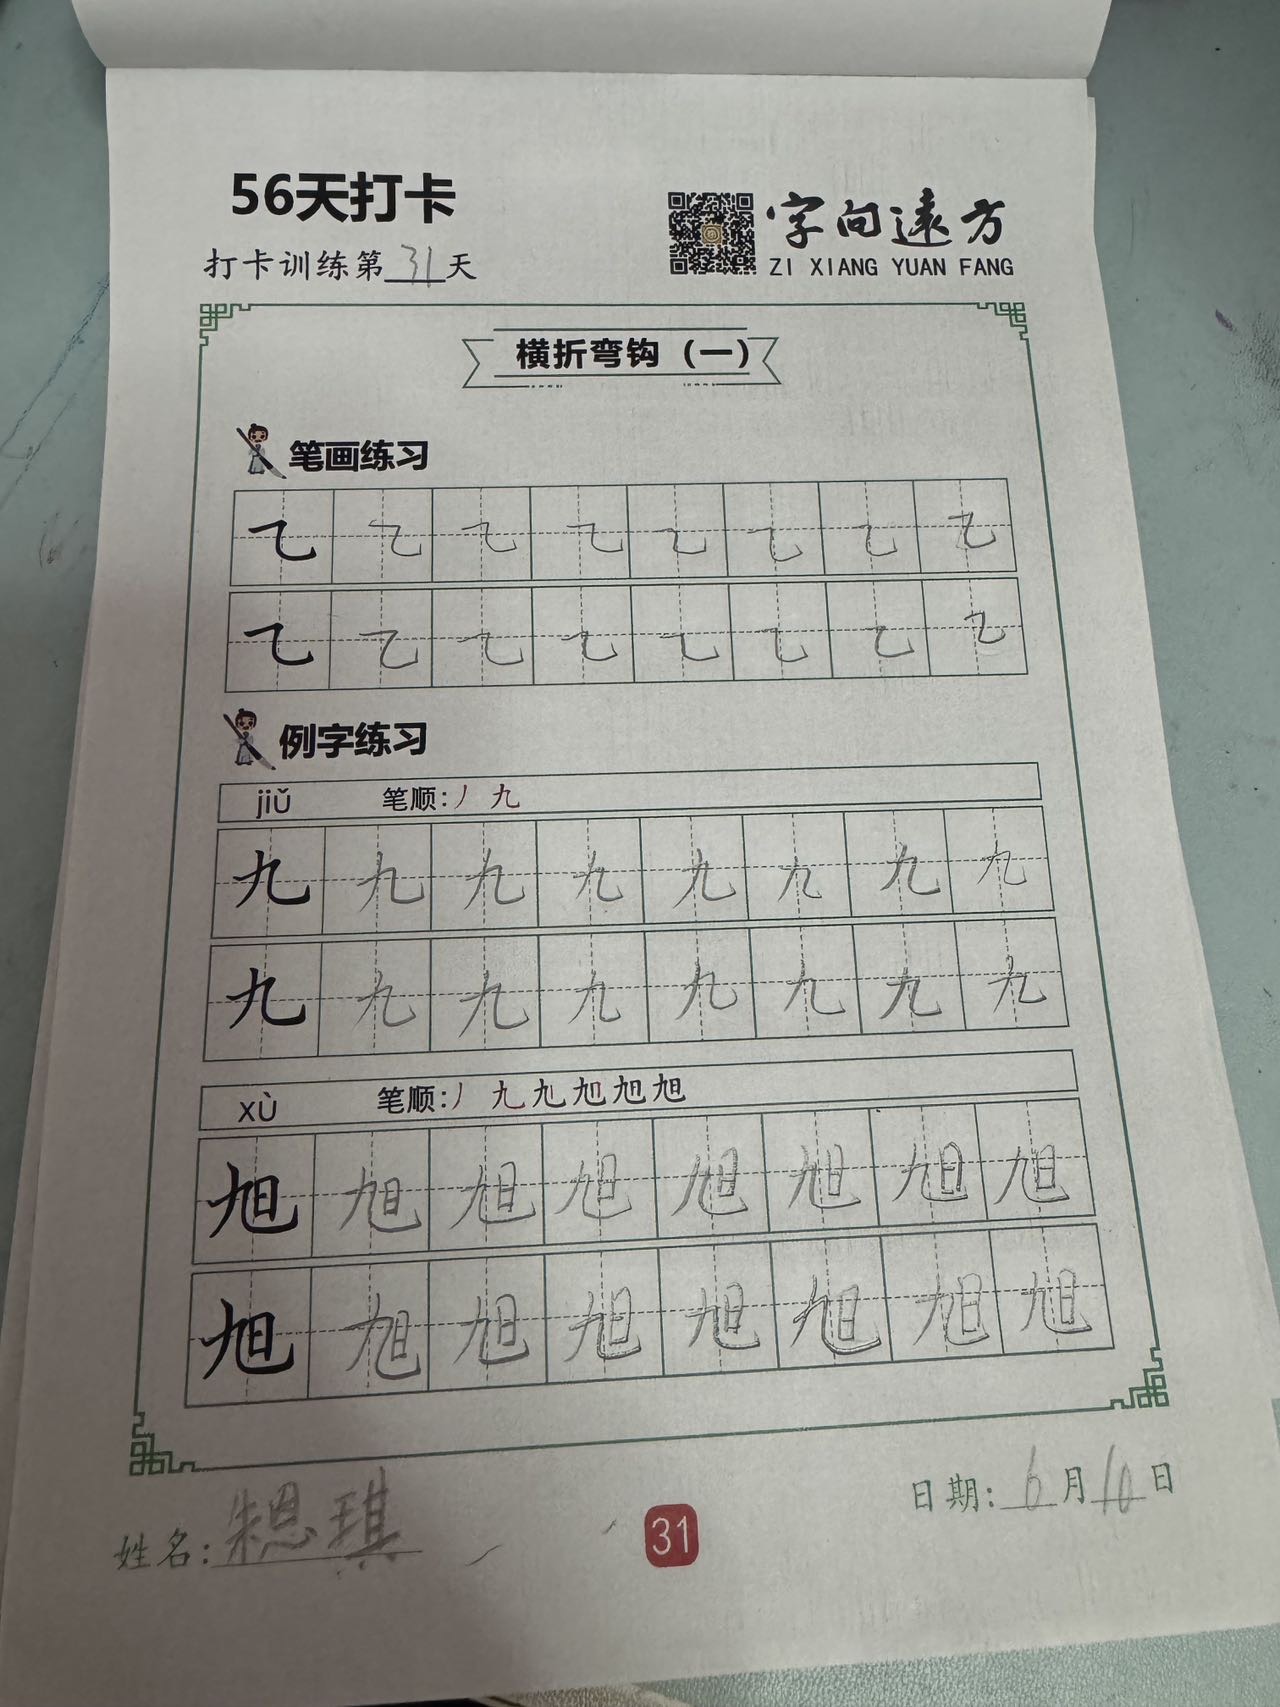 56天打卡
字向远方
打卡训练第31天
ZI XIANG YUAN FANG
横折弯钩（一）
笔画练习
㇈ ㇈ ㇈ ㇈ ㇈ ㇈ ㇈ ㇈
㇈ ㇈ ㇈ ㇈ ㇈ ㇈ ㇈ ㇈
例字练习
jiǔ 笔顺:丿 九
九 九 九 九 九 九 九 九
九 九 九 九 九 九 九 九
xù 笔顺:丿 九 九 旭 旭 旭
旭 旭 旭 旭 旭 旭 旭 旭
旭 旭 旭 旭 旭 旭 旭 旭
日期:6月10日
姓名:朱恩琪
31